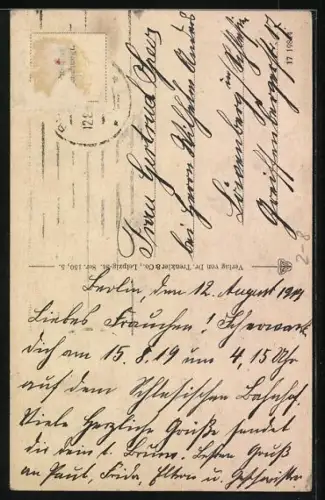 Frau Gertrud
bei Herrn Wilhelm
Löwenberg in Schlesien
17
17 198
Verlag von Dr. Trenkler & Co., Leipzig. Ser. 150, 5.
2-8
12.8
Berlin, den 12. August 1919
Liebes Frauchen! Ich erwarte
Dich am 15.8.19 um 4,15 Uhr
auf dem Schlesischen Bahnhof.
Viele Herzliche Grüße sendet
dir dein l. Bruno. Besten Gruß
an Paul, Frida, Eltern u. Geschwister